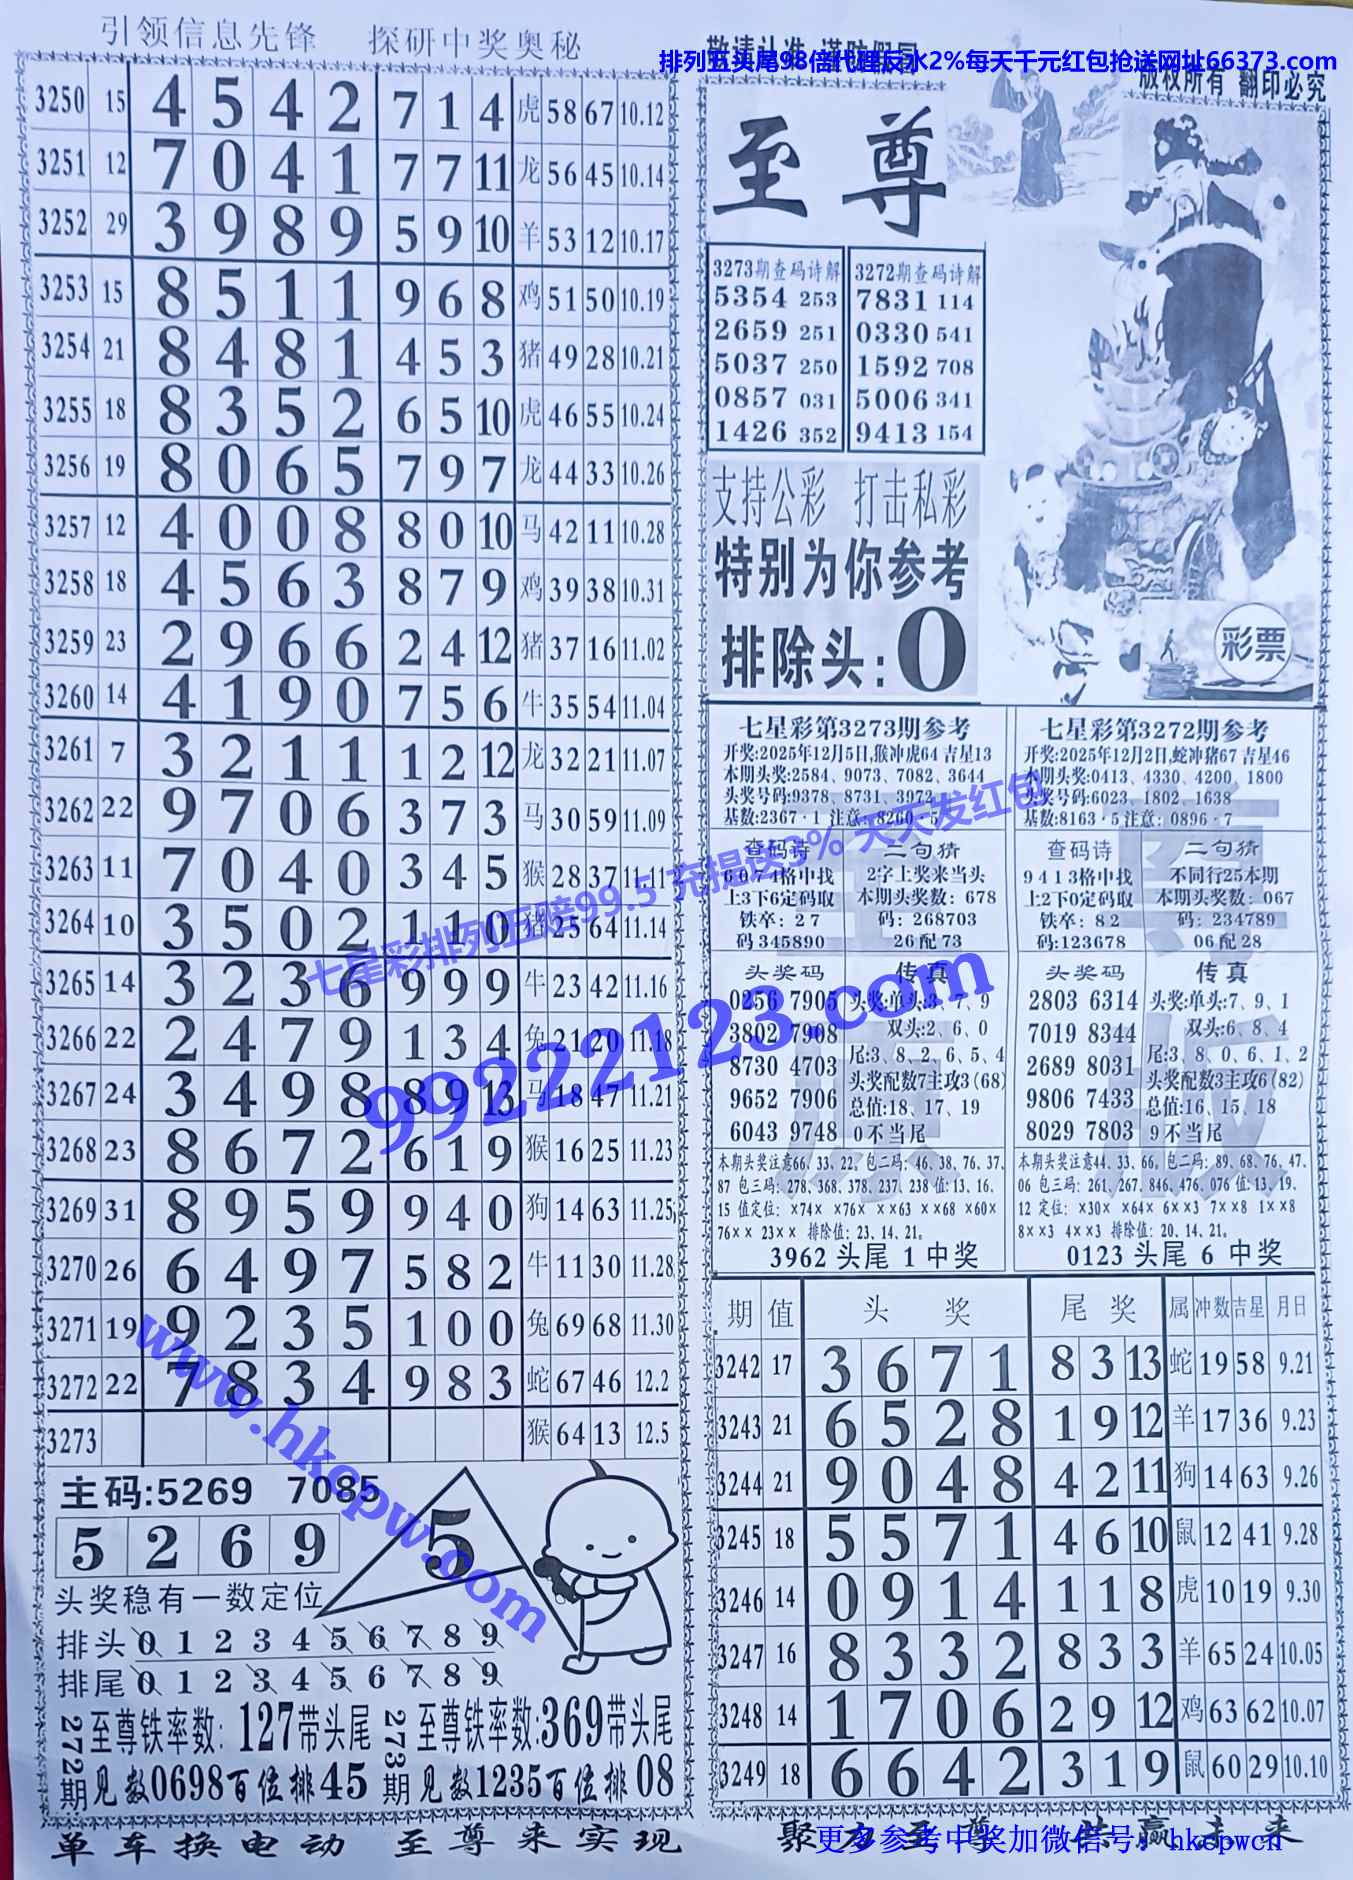 引领信息先锋 探研中奖奥秘
3250 15 4 5 4 2 7 1 4 虎 58 67 10.12
3251 12 7 0 4 1 7 7 11 龙 56 45 10.14
3252 29 3 9 8 9 5 9 10 羊 53 12 10.17
3253 15 8 5 1 1 9 6 8 鸡 51 50 10.19
3254 21 8 4 8 1 4 5 3 猪 49 28 10.21
3255 18 8 3 5 2 6 5 10 虎 46 55 10.24
3256 19 8 0 6 5 7 9 7 龙 44 33 10.26
3257 12 4 0 0 8 8 0 10 马 42 11 10.28
3258 18 4 5 6 3 8 7 9 鸡 39 38 10.31
3259 23 2 9 6 6 2 4 12 猪 37 16 11.02
3260 14 4 1 9 0 7 5 6 牛 35 54 11.04
3261 7 3 2 1 1 1 2 12 龙 32 21 11.07
3262 22 9 7 0 6 3 7 3 马 30 59 11.09
3263 11 7 0 4 0 3 4 5 猴 28 37 11.11
3264 10 3 5 0 2 1 1 0 猪 25 64 11.14
3265 14 3 2 3 6 9 9 9 牛 23 42 11.16
3266 22 2 4 7 9 1 3 4 兔 21 20 11.18
3267 24 3 4 9 8 8 9 13 马 18 47 11.21
3268 23 8 6 7 2 6 1 9 猴 16 25 11.23
3269 31 8 9 5 9 9 4 0 狗 14 63 11.25
3270 26 6 4 9 7 5 8 2 牛 11 30 11.28
3271 19 9 2 3 5 1 0 0 兔 69 68 11.30
3272 22 7 8 3 4 9 8 3 蛇 67 46 12.2
3273 猴 64 13 12.5
主码:5269 7085
5 2 6 9
5
头奖稳有一数定位
排头 0 1 2 3 4 5 6 7 8 9
排尾 0 1 2 3 4 5 6 7 8 9
272期 至尊铁率数: 127带头尾
见数0698百位排45
273期 至尊铁率数:369带头尾
见数1235百位排08
单车换电动 至尊来实现
排列五头尾98倍代理反水2%每天千元红包抢送网址66373.com
版权所有 翻印必究
至尊
3273期查码诗解
5354 253
2659 251
5037 250
0857 031
1426 352
3272期查码诗解
7831 114
0330 541
1592 708
5006 341
9413 154
支持公彩 打击私彩
特别为你参考
排除头:0
彩票
七星彩第3273期参考
开奖:2025年12月5日,猴冲虎64 吉星13
本期头奖:2584、9073、7082、3644
头奖号码:9378、8731、3972
基数:2367·1 注意:8260·5
查码诗
6074格中找
上3下6定码取
铁卒:27
码345890
二句猜
2字上奖来当头
本期头奖数:678
码:268703
26配73
头奖码
0256 7905
3802 7908
8730 4703
9652 7906
6043 9748
传真
头奖:单头:3、7、9
双头:2、6、0
尾:3、8、2、6、5、4
头奖配数7主攻3(68)
总值:18、17、19
0不当尾
本期头奖注意66、33、22。包二码:46、38、76、37、
87 包三码:278、368、378、237、238 值:13、16、
15 值定位:×74× ×76× ××63 ××68 ×60×
76×× 23×× 排除值:23、14、21。
3962 头尾 1 中奖
七星彩第3272期参考
开奖:2025年12月2日,蛇冲猪67 吉星46
本期头奖:0413、4330、4200、1800
头奖号码:6023、1802、1638
基数:8163·5 注意:0896·7
查码诗
9413格中找
上2下0定码取
铁卒:82
码:123678
二句猜
不同行25本期
本期头奖数:067
码:234789
06配28
头奖码
2803 6314
7019 8344
2689 8031
9806 7433
8029 7803
传真
头奖:单头:7、9、1
双头:6、8、4
尾:3、8、0、6、1、2
头奖配数3主攻6(82)
总值:16、15、18
9不当尾
本期头奖注意44、33、66。包二码:89、68、76、47、
06 包三码:261、267、846、476、076 值:13、19、
12 定位:×30× ×64× 6××3 7××8 1××8
8××3 4××3 排除值:20、14、21。
0123 头尾 6 中奖
期 值 头奖 尾奖 属 冲数 吉星 月日
3242 17 3 6 7 1 8 3 13 蛇 19 58 9.21
3243 21 6 5 2 8 1 9 12 羊 17 36 9.23
3244 21 9 0 4 8 4 2 11 狗 14 63 9.26
3245 18 5 5 7 1 4 6 10 鼠 12 41 9.28
3246 14 0 9 1 4 1 1 8 虎 10 19 9.30
3247 16 8 3 3 2 8 3 3 羊 65 24 10.05
3248 14 1 7 0 6 2 9 12 鸡 63 62 10.07
3249 18 6 6 4 2 3 1 9 鼠 60 29 10.10
更多参考中奖加微信号：hkcpwcn
七星彩排列五赔99.5 充提送3% 天天发红包
99222123.com
www.hkcpw.com